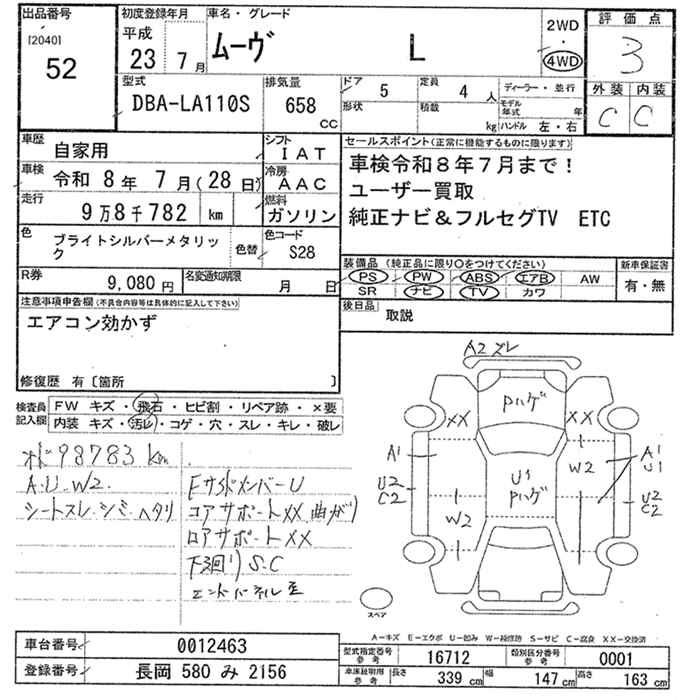 出品番号
[2040]
52
初度登録年月
平成
23 7月
車名・グレード
ムーヴ L
2WD
・
4WD
評価点
3
外装 内装
C C
型式
DBA-LA110S
排気量
658
CC
ドア
5
形状
定員
4人
積載
kg
ディーラー・並行
モデル年式 年
ハンドル 左・右
車歴
自家用
シフト
IAT
車検
令和 8年 7月(28日)
冷房
AAC
走行
9万8千782 km
燃料
ガソリン
色
ブライトシルバーメタリック
色替
色コード
S28
R券
9,080円
名変通知期限
月 日
セールスポイント(正常に機能するものに限ります)
車検令和8年7月まで!
ユーザー買取
純正ナビ&フルセグTV ETC
装備品(純正品に限り○をつけてください)
PS PW ABS エアB AW
SR ナビ TV カワ
新車保証書
有・無
後日品
取説
注意事項申告欄(不具合内容等は具体的に記入して下さい)
エアコン効かず
修復歴 有〔箇所 〕
検査員記入欄
FW キズ・飛石・ヒビ割・リペア跡・×要
内装 キズ・汚レ・コゲ・穴・スレ・キレ・破レ
98783 km
A.U.W2
シートスレ.シミ.ヘタリ
FサイドメンバーU
コアサポートXX 曲がり
ロアサポートXX
下廻りS.C
エンドパネル歪
A2 ズレ
Pハゲ
XX
XX
A1
W2
A1
U1
U1
Pハゲ
U2
C2
W2
U2
C2
スペア
A-キズ E-エクボ U-凹み W-補修跡 S-サビ C-腐食 XX-交換済
車台番号
0012463
登録番号
長岡 580 み 2156
型式指定番号
参考
16712
類別区分番号
参考
0001
車体説明用
参考
長さ 339 cm 幅 147 cm 高さ 163 cm